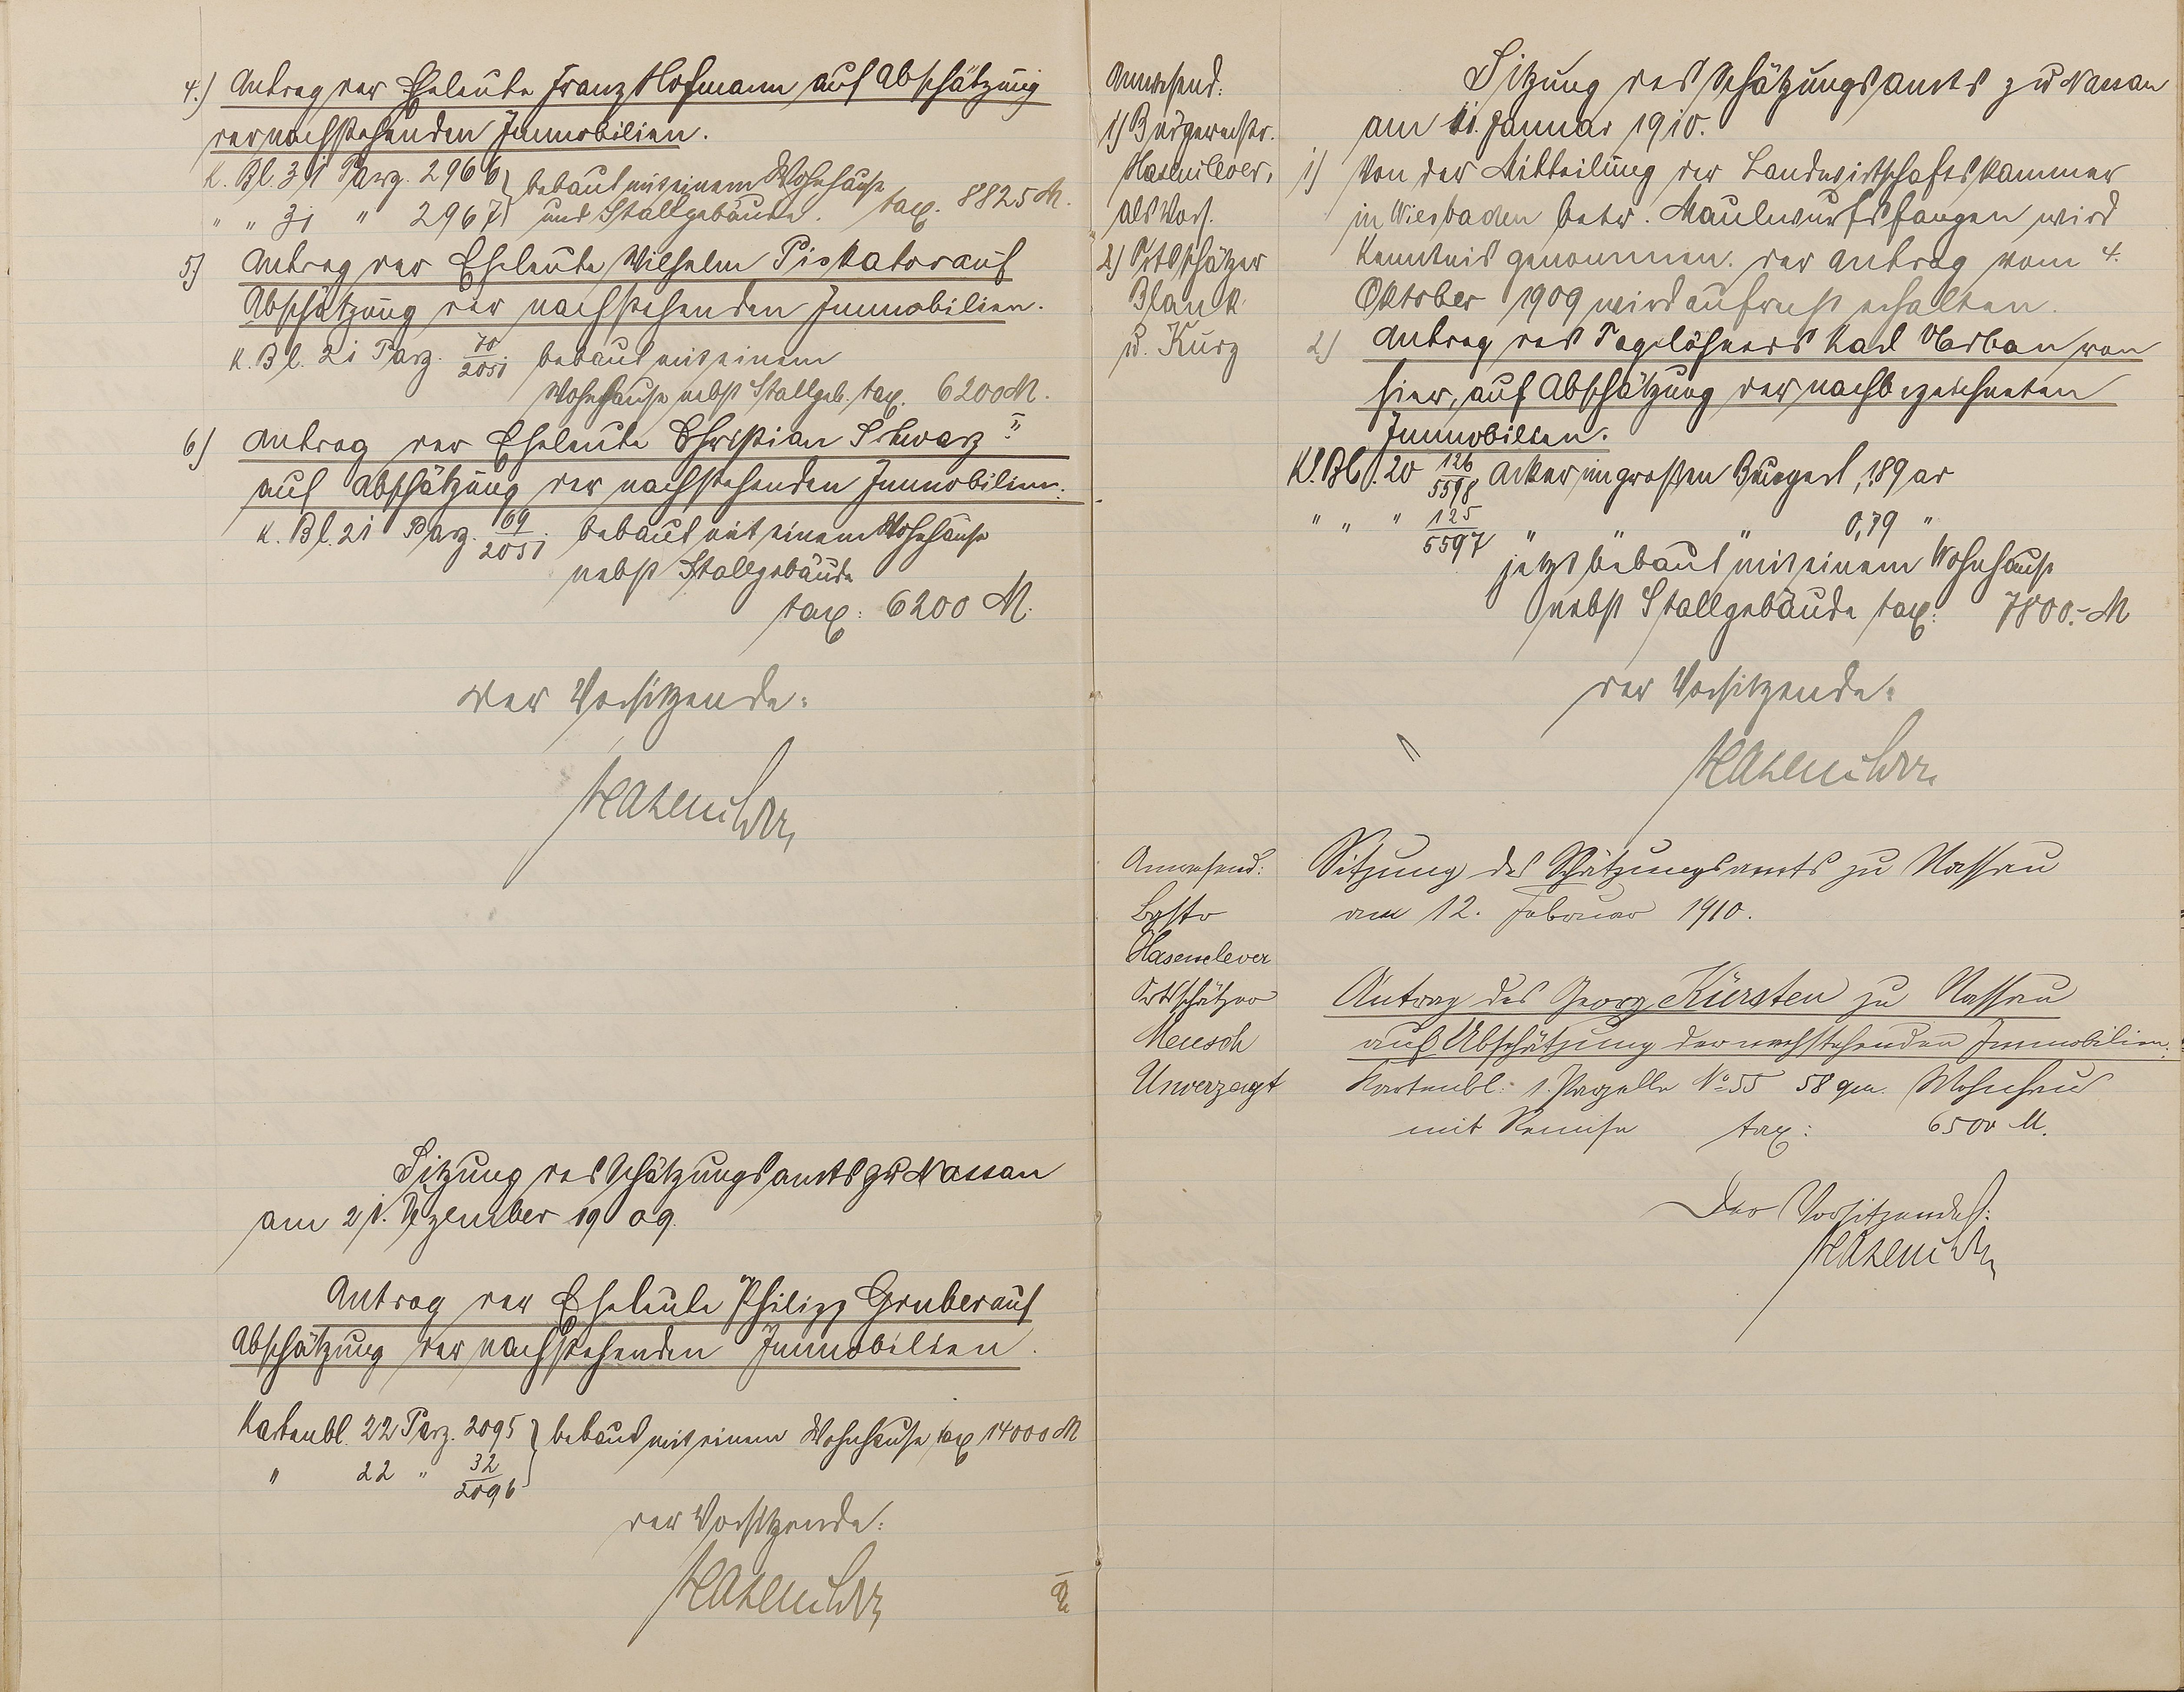 4.) Antrag der Eheleute Franz Hofmann auf Abschätzung
der nachstehenden Immobilien.
K. Bl. 31 Parz. 2966 } bebaut mit einem Wohnhause
" " 31 " 2967 } und Stallgebäude. tax. 8825 M.
5) Antrag der Eheleute Wilhelm Piskator auf
Abschätzung der nachstehenden Immobilien.
K. Bl. 21 Parz. 70/2051 bebaut mit einem
Wohnhause nebst Stallgeb. tax. 6200 M.
6) Antrag der Eheleute Christian Schwarz II
auf Abschätzung der nachstehenden Immobilien.
K. Bl. 21 Parz. 69/2051 bebaut mit einem Wohnhause
nebst Stallgebäude
tax: 6200 M.
Der Vorsitzende:
Hasenclever
Sitzung des Schätzungsamts zu Nassau
am 21. Dezember 1909.
Antrag der Eheleute Philipp Gruber auf
Abschätzung der nachstehenden Immobilien.
Kartenbl. 22 Parz. 2095 } bebaut mit einem Wohnhause tax 14000 M
" 22 " 32/2096 }
der Vorsitzende:
Hasenclever
Anwesend:
1) Bürgermstr.
Hasenclever,
als Vors.
2) Ortsschätzer
Blank
u. Kurz
Sitzung des Schätzungsamts zu Nassau
am 11. Januar 1910.
1) Von der Mitteilung der Landwirtschaftskammer
in Wiesbaden betr. Maulwurfsfangen wird
Kenntnis genommen. der Antrag vom 4.
Oktober 1909 wird aufrecht erhalten.
2) Antrag des Taglöhners Karl Urban von
hier, auf Abschätzung der nachbezeichneten
Immobilien.
K. Bl. 20 126/5598 Acker im großen 1,89 ar
" " " 125/5597 " " " 0,79 "
jetzt bebaut mit einem Wohnhause
nebst Stallgebäude tax: 7800.- M
der Vorsitzende:
Hasenclever
Anwesend:
Bgstr
Hasenclever
Ortsschätzer
Meusch
Unverzagt
Sitzung des Schätzungsamts zu Nassau
am 12. Februar 1910.
Antrag des Georg Kürsten zu Nassau
auf Abschätzung der nachstehenden Immobilien:
Kartenbl: 1. Parzelle No 55 58 qm. Wohnhaus
mit Remise tax: 6500 M.
Der Vorsitzende:
Hasenclever